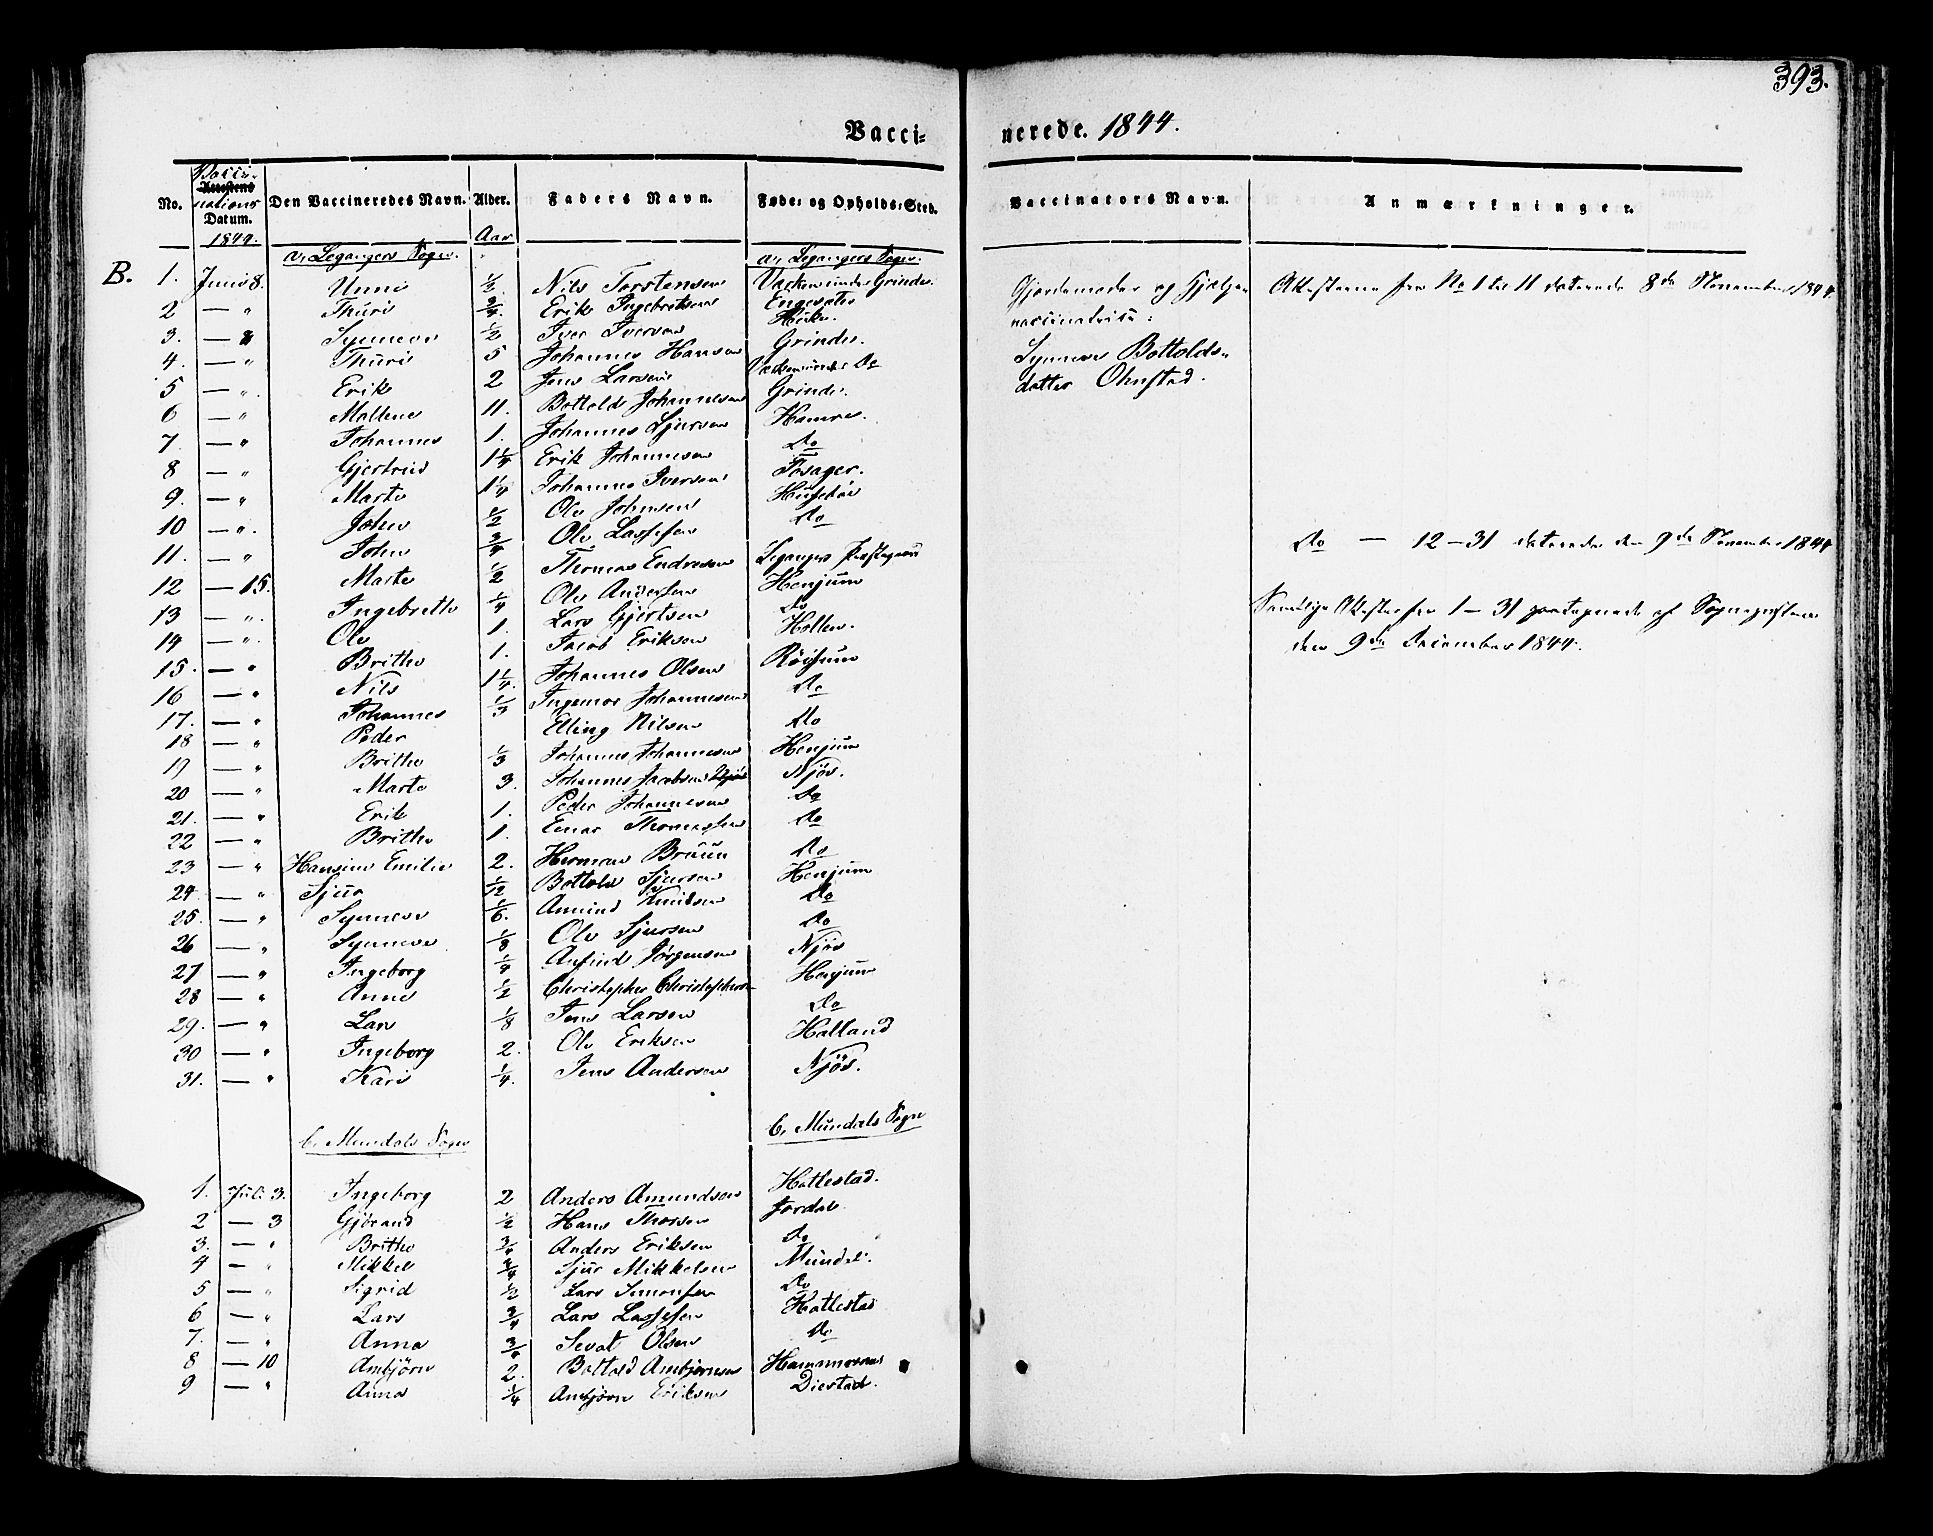 393.
Vaccinerede. 1844.
No. | Vaccinations Datum. 1844. | Den Vaccineredes Navn. | Alder. Aar | Faders Navn. | Føde- og Opholds-Sted. | Vaccinators Navn. | Anmærkninger.
B. a, Leganger Sogn. | a, Leganger Sogn.
1. Juni 8. Unni 1/2. Nils Torstensen under Grinde.
2 — " Thuri 3/4. Erik Ingebriktsen Engesæte
3. — 8 Synneve 1/2 Iver Iversen Huke.
4. — " Thuri 5 Johannes Hansen Grinde.
5 — " Erik 2 Jens Larsen under Do
6 — " Maltene 11. Bottolv Johannesen Grinde.
7. — " Johannes 1. Johannes Sjursen Hamre.
8 — " Gjertrud 1 1/4 Erik Johannesen Do
9. — " Marte 1 1/4 Johannes Iversen Tosager.
10 — " John 1/2 Ole Johnsen Husebøe
11. — " John 3/4 Ole Lassesen Do
12 — 15. Marte 1/2 Thomas Endresen Leganger Præstegaard
13 — " Ingebrithe 1/4 Ole Andersen Henjum
14 — " Ole 1. Lars Gjertsen Do
15. — " Brithe 1. Jacob Eriksen Holten.
16 — " Nils 1 1/4. Johannes Olsen Röisum
17. — " Johannes 1/3 Ingemar Johannesen Do
18 — " Peder Elling Nilsen Do
19 — " Brithe 1/3 Johannes Johannesen Henjum
20 — " Marte 3. Johannes Jacobsen Njös.
21. — " Erik 1. Peder Johannesen Do
22 — " Brithe 1. Einar Thomassen Do
23 — " Hansine Emilie 2. Herman Bruun Do
24. — " Sjur 1/12 Bottolv Sjursen Henjum
25. — " Synneve 1/6. Amund Knudsen Do
26 — " Synneve 1/8 Ole Sjursen Do
27 — " Ingeborg 1/4 Anfind Jørgensen Njös
28 — " Anne 1/2 Christopher Christophersen Henjum
29. — " Lars 1/8 Jens Larsen Do
30 — " Ingeborg 2. Ole Eriksen Halland
31. — " Kari 1/4. Jens Andersen Njös.
Gjordemoder og Hjælpevaccinatrice:
Synneve Bottolds-
datter Ohnstad.
Attesterne fra No 1 til 11 daterede 8de November 1844.
Do — 12 — 31 daterede den 9de November 1844
Samtlige Attester fra 1 — 31 paategnede af Sognepræsten
den 9de December 1844.
b, Mundals Sogn | b, Mundals Sogn
1. Juli 3. Ingeborg 2 Anders Amundsen Hatlestad.
2 — 3 Gjørand 1/2 Hans Thorsen Jordal.
3. — " Brithe 3/4 Anders Eriksen Do
4 — " Mikkel 3/4 Sjur Mikkelsen Mundal.
5 — " Sigrid 1/2 Lars Simonsen Do
6 — " Lars 3/4 Lars Lassesen Hatlestad
7. — " Anna 3/4 Sevat Olsen Do
8 — 10 Anbjörn 2. Bottold Anbjørnsen
9 — " Anna 1/4 Anbjørn Eriksen Diestad.